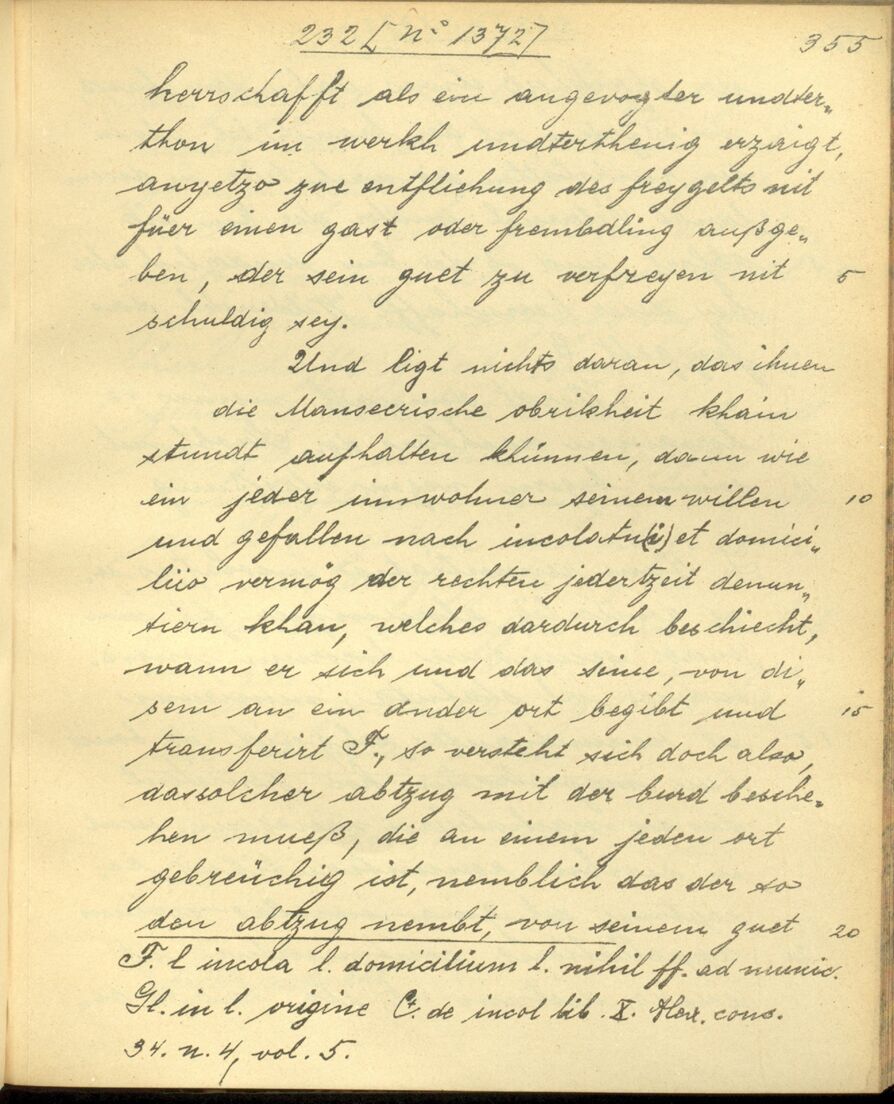 232 [N° 1372]
355
herrschafft als ein angevogter undter„
thon im werkh undterthenig erzaigt,
anyetzo zue entflichung des freygelts nit
füer einen gast oder frembdling außge„
ben, der sein guet zu verfreyen nit 5
schuldig sey.
Und ligt nichts daran, das ihnen
die Manseerische obrikheit khain
stundt aufhalten khünnen, dann wie
ein jeder innwohner seinem willen 10
und gefallen nach incolatu(i) et domici„
liio vermög der rechten jederzeit denun„
tiern khan, welches dardurch beschiecht,
wann er sich und das seine, von di„
sem an ein ander ort begibt und 15
transferirt F., so versteht sich doch also,
dassolcher abtzug mit der burd besche„
hen mueß, die an einem jeden ort
gebreüchig ist, nemblich das der so
den abtzug nembt, von seinem guet 20
F. l incola l. domicilium l. nihil ff. ad munic.
Gl. in l. origine C. de incol lib. X. Alex. cons.
34. n. 4, vol. 5.